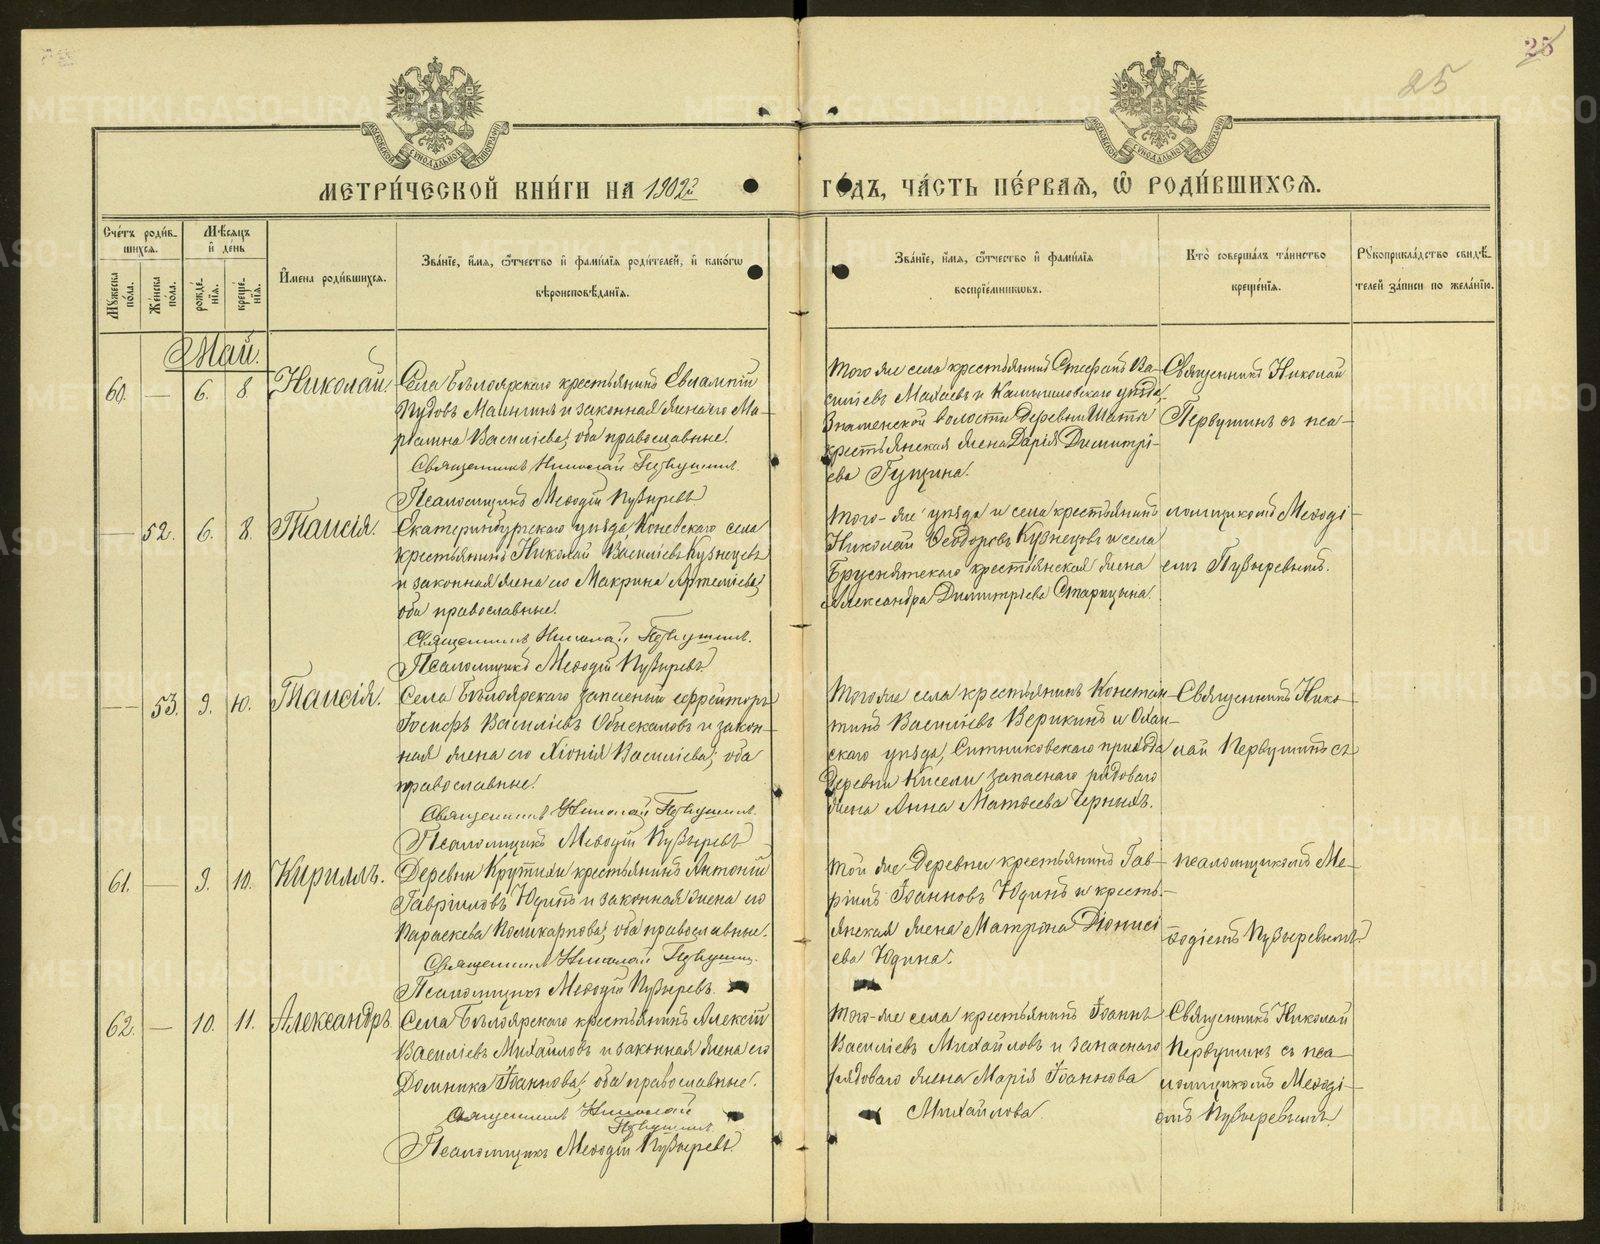 25
25
МЕТРИ́ЧЕСКОЙ КНИ́ГИ НА 1902й
ГО́ДЪ, ЧА́СТЬ ПЕ́РВАѦ, Ѡ҆ РОДИ́ВШИХСѦ.
МОСКОВСКОЙ СѴНОДАЛЬНОЙ ТИПОГРАФІИ
МОСКОВСКОЙ СѴНОДАЛЬНОЙ ТИПОГРАФІИ
Сче́тъ роди́вшихсѧ.
Мꙋ́жеска по́ла.
Же́нска по́ла.
Мѣ́сѧцъ и҆ де́нь
рожде́нїѧ.
креще́нїѧ.
И҆мена роди́вшихсѧ.
Зва́нїе, и҆́мѧ, ѻ҆́тчество и҆ фами́лїѧ роди́телей, и҆ како́гѡ
вѣроисповѣ́данїѧ.
Зва́нїе, и҆́мѧ, ѻ҆́тчество и҆ фами́лїѧ
воспрїе́мникѡвъ.
Кто̀ соверша́лъ та́инство
креще́нїѧ.
Рꙋкоприкла́дство свидѣ́-
телей за́писи по жела́нїю.
Май.
60. — 6. 8 Николай.
Села Бѣлоярскаго крестьянинъ Евлампій
Пудовъ Малыгинъ и законная жена его Ма-
ріамна Василіева; оба православные.
Священникъ Николай Первушинъ.
Псаломщикъ Меѳодій Пузыревъ
Того же села крестьянинъ Стефанъ Ва-
силіевъ Махаевъ и Камышловскаго уѣзда
Знаменской волости Деревни Шаты
крестьянская жена Дарія Димитрі-
ева Гущина.
Священникъ Николай
Первушинъ съ пса-
— 52. 6. 8. Таисія.
Екатеринбургскаго уѣзда Коневскаго села
крестьянинъ Николай Василіевъ Кузнецовъ
и законная жена его Макрина Артеміева;
оба православные.
Священникъ Николай Первушинъ.
Псаломщикъ Меѳодій Пузыревъ
Того-же уѣзда и села крестьянинъ
Николай Ѳеодоровъ Кузнецовъ и села
Бруснятскаго крестьянская жена
Александра Димитріева Старицына.
ломщикомъ Меѳоді-
емъ Пузыревымъ.
— 53. 9. 10. Таисія.
Села Бѣлоярскаго запасный ефрейторъ
Іосифъ Василіевъ Обыскаловъ и закон-
ная жена его Хіонія Василіева; оба
православные.
Священникъ Николай Первушинъ.
Псаломщикъ Меѳодій Пузыревъ
Того же села крестьянинъ Констан-
тинъ Василіевъ Верикинъ и Охан-
скаго уѣзда, Ситниковскаго прихода
Деревни Кисели запаснаго рядоваго
жена Анна Матѳеева Черныхъ.
Священникъ Нико-
лай Первушинъ съ
61. — 9. 10. Кириллъ.
Деревни Крутихи крестьянинъ Антоній
Гавріиловъ Юдинъ и законная жена его
Параскева Поликарпова; оба православные.
Священникъ Николай Первушинъ.
Псаломщикъ Меѳодій Пузыревъ.
Той же Деревни крестьянинъ Гав-
ріилъ Іоанновъ Юдинъ и кресть-
янская жена Матрона Діонисі
ева Юдина.
псаломщикомъ Ме-
ѳодіемъ Пузыревымъ.
62. — 10. 11. Александръ.
Села Бѣлоярскаго крестьянинъ Алексій
Василіевъ Михайловъ и законная жена его
Домника Іоаннова; оба православные.
Священникъ Николай
Первушинъ.
Псаломщикъ Меѳодій Пузыревъ.
Того-же села крестьянинъ Іоаннъ
Василіевъ Михайловъ и запаснаго
рядоваго жена Марія Іоаннова
Михайлова
Священникъ Николай
Первушинъ съ пса-
ломщикомъ Меѳоді-
емъ Пузыревымъ.
METRIKI.GASO-URAL.RU